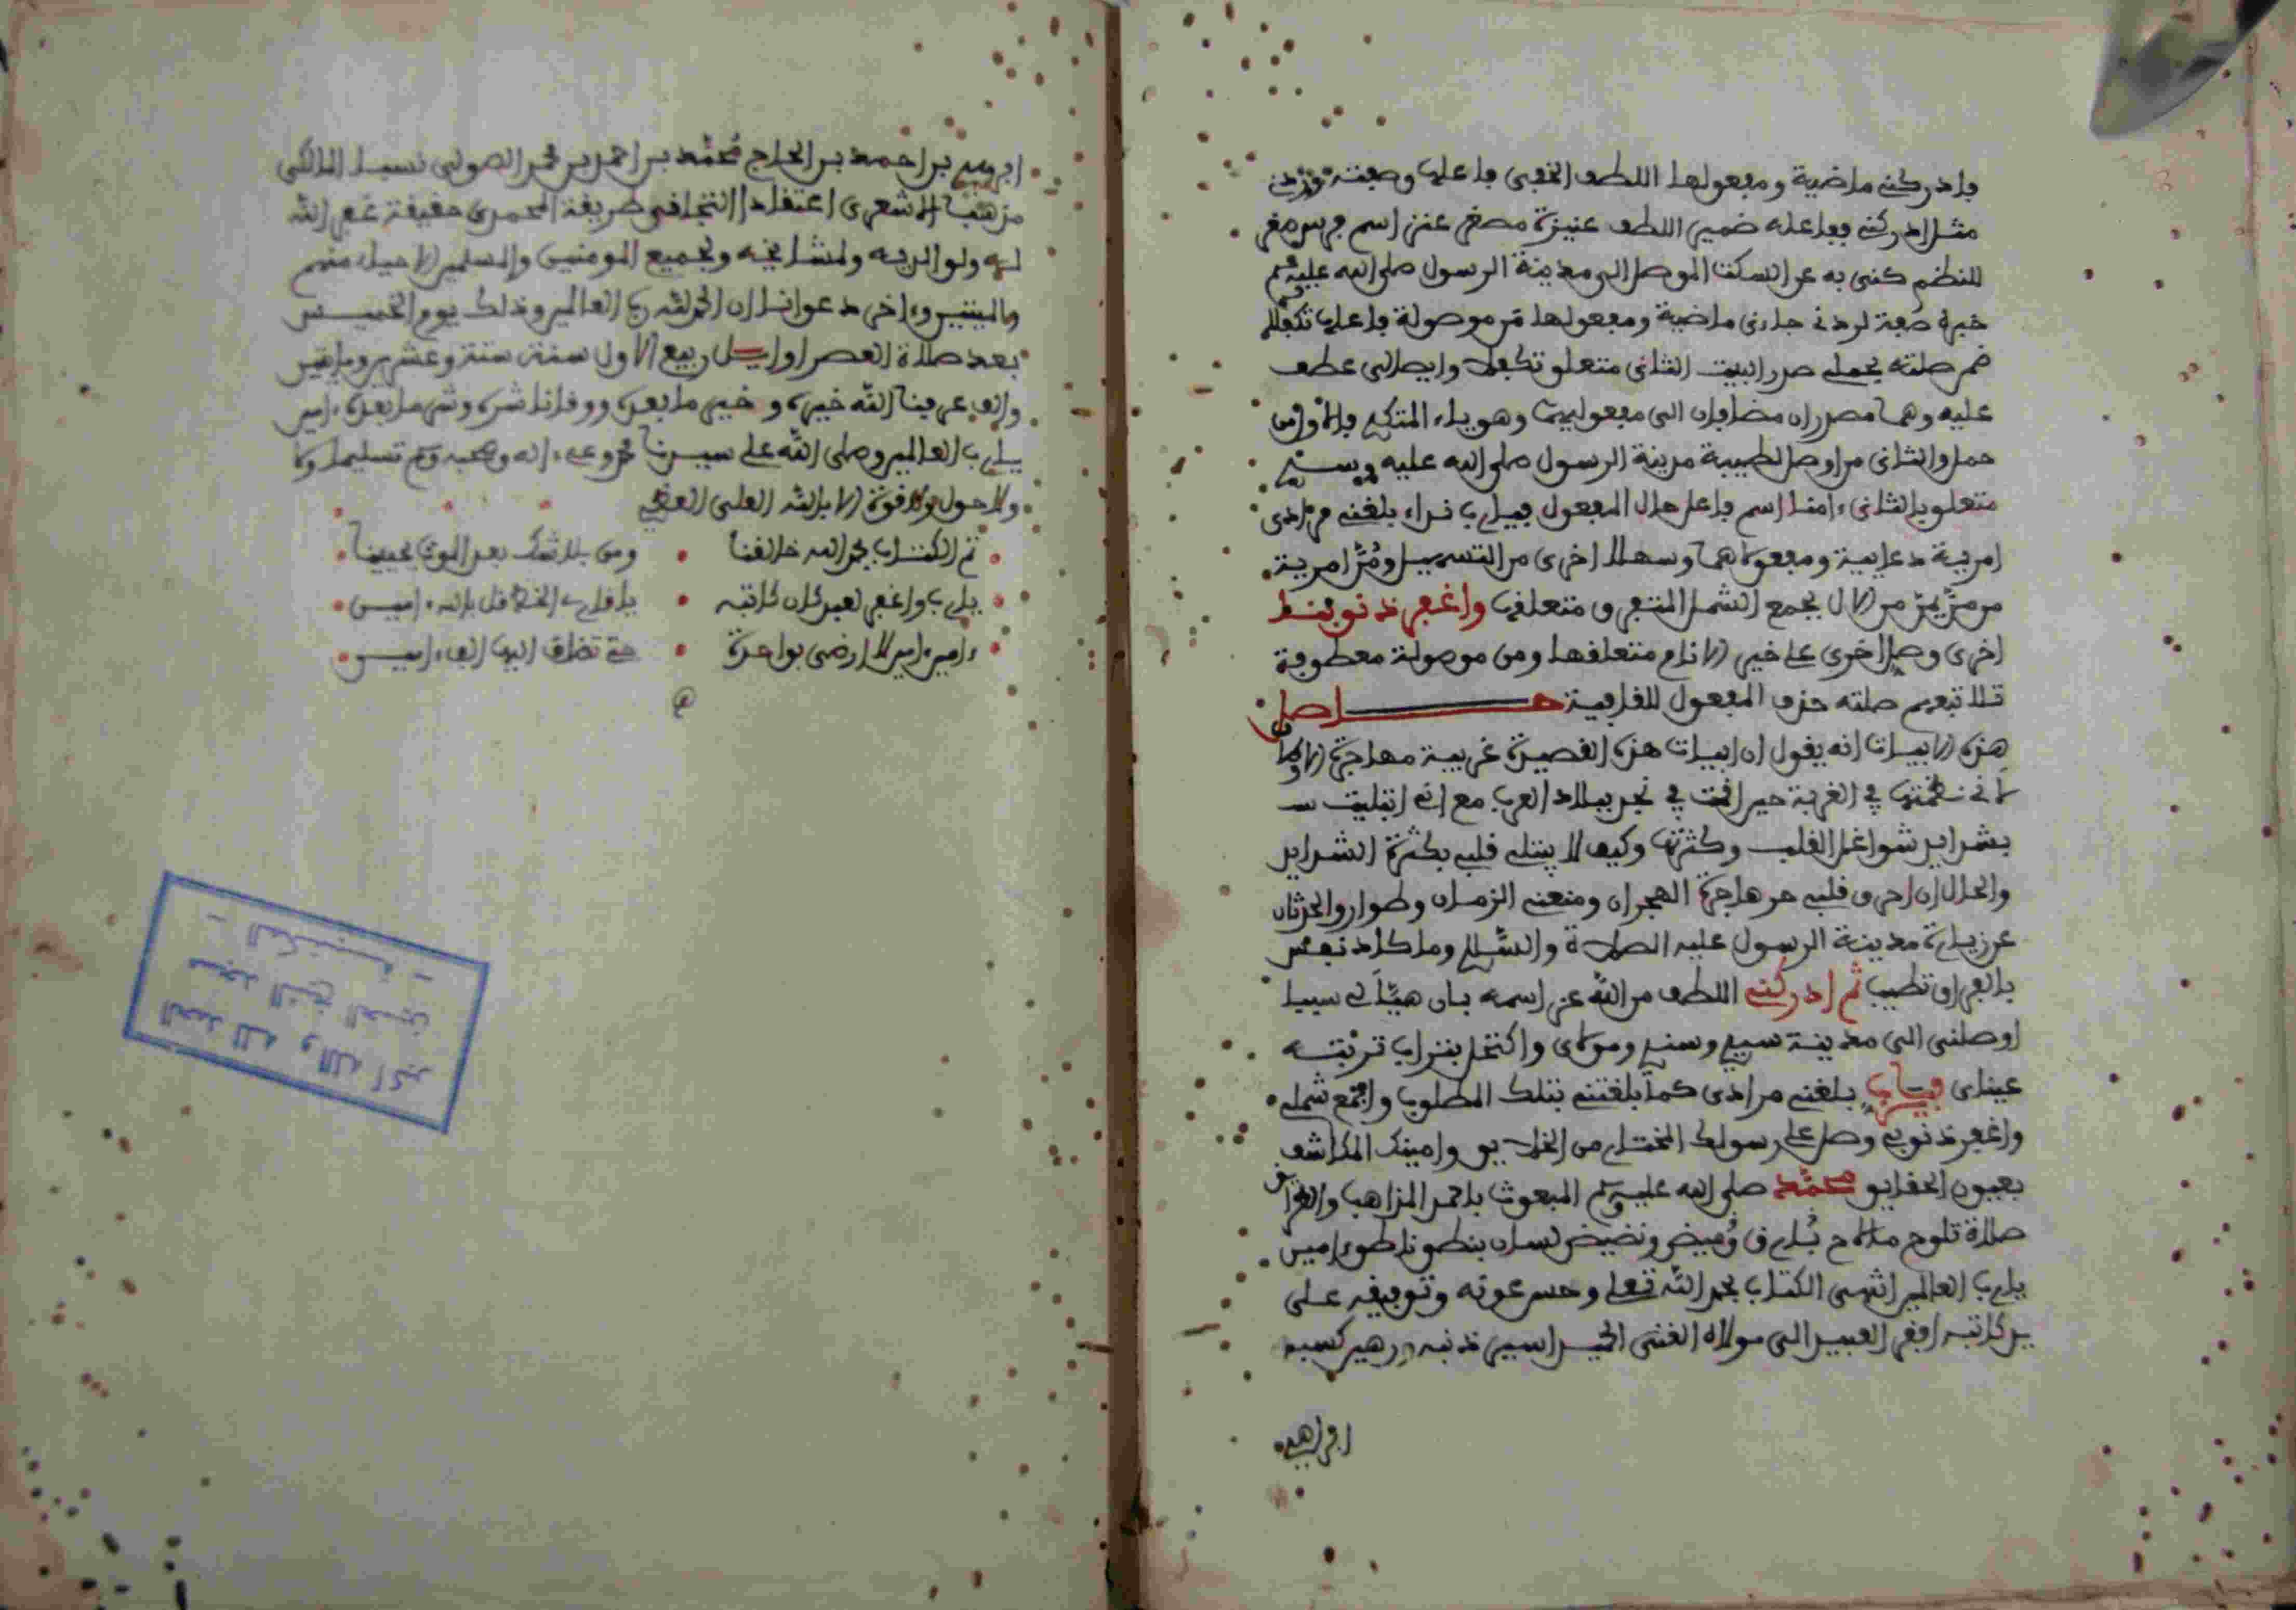 فادركنى ماضية ومفعولها اللطف الخفي فاعلها وصفته
مثل ادركنى ففاعله ضمير اللطف عنيزة مصغر عنز اسم
للنظم كنى به عن السكت الموصل الى مدينة الرسول صلى الله عليه وسلم
ماضية ومفعولها موصولة فاعلها تكفل
صلته بحملي صدر البيت الثاني متعلق تكفل وايصالى عطف
عليه وهما مصدران مضافان الى مفعوليهما وهو ياء المتكلم فالاول من
حمل والثاني من اوصل لطيبة مدينة الرسول صلى الله عليه وسلم
متعلق بالثاني ءامنا اسم فاعل حال المفعول فيارب نداء بلغنى مرادى
امرية دعايية ومفعولاهما وسهلا اخرى من التسهيل ومن امرية
من من يمن من الـ بجمع الشمل المتفرق متعلقها واغفر ذنوبنا
اخرى وصل اخرى على خير الانام متعلقها ومن موصولة معطوفة
تلا تبعهم صلته حذف المفعول للقافية حاصل
هذه الابيات انه يقول ان ابيات هذه القصيدة غريبة مهاجرة
لانى نظمتها فى الغربة حين اقمت فى نجد ببلاد العرب مع انى ابتليت
بشدايد شواغل القلب وكثرتها وكيف لا يبتلى قلبى بكثرة الشدايد
والحال ان احرق قلبى حر هاجرة الهجران ومنعنى الزمان وطوارق الحدثان
عن زيارة مدينة الرسول عليه الصلاة والسلام وما كاد نفس
بالفراق تطيب ثم ادركنى اللطف من الله عز اسمه بان هيأ لى سببا
اوصلنى الى مدينة سيدى وسندى ومولاى واكتحل بتراب تربته
عيناى فيارب بلغنى مرادى كما بلغتنى بتلك المطلوب واجمع شملى
واغفر ذنوبى وصل على رسولك المختار من الخلايق وامينك المكاشف
بعيون الحقايق محمد صلى الله عليه وسلم المبعوث باحمد المذاهب والطرائق
صلاة تلوح ما لاح بارق وميض ونضيض لسان بنطق ناطق ءامين
يارب العالمين انتهى الكتاب بحمد الله تعلى وحسن عونه وتوفيقه على
يد كاتبه افقر العبيد الى مولاه الغنى الحميد اسير ذنبه رهين كسبه
ابراهيم
ابراهيم بن احمد بن الحاج محمد بن احمد بن نسبا المالكى
مذهبا الاشعرى اعتقادا التجانى طريقة المحمدى حقيقة غفر الله
له ولوالديه ولمشايخه ولجميع المومنين والمسلمين الاحياء منهم
والميتين وءاخر دعوانا ان الحمد لله رب العالمين وذلك يوم الخميس
بعد صلاة العصر اوايل ربيع الاول سنة ستة وعشرين ومايتين
والف عرفنا الله خيره وخير ما بعده ووقانا شره وشر ما بعده ءامين
يارب العالمين وصلى الله على سيدنا محمد وعلى ءاله وصحبه وسلم تسليما
ولا حول ولا قوة الا بالله العلى العظيم
تم الكتاب بحمد الله خالقنا ومن بلا شك بعد الموت يحيينا
يارب واغفر لعبد كان كاتبه يا قارى الخط قل بالله ءامين
ءامين ءامين لا ارضى بواحدة حتى تضاف اليها الف ءامين
الحمد لله والله اكبر
مسجد الشيخ الحسين
المكتبة